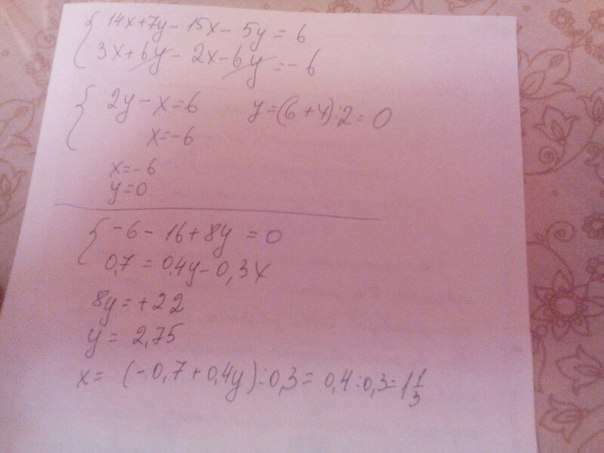 14x+7y-15x-5y=6
3x+6y-2x-6y=-6
2y-x=6 y=(6+4):2=0
x=-6
x=-6
y=0
-6-16+8y=0
0,7=0,4y-0,3x
8y=+22
y=2,75
x=(-0,7+0,4y):0,3=0,4:0,3=1 1/3